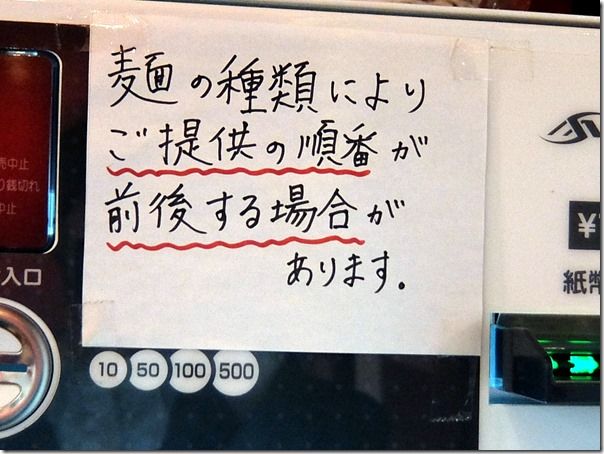 麺の種類により
ご提供の順番が
前後する場合が
あります。
売中止
り銭切れ
中止
入口
10 50 100 500
¥
紙幣